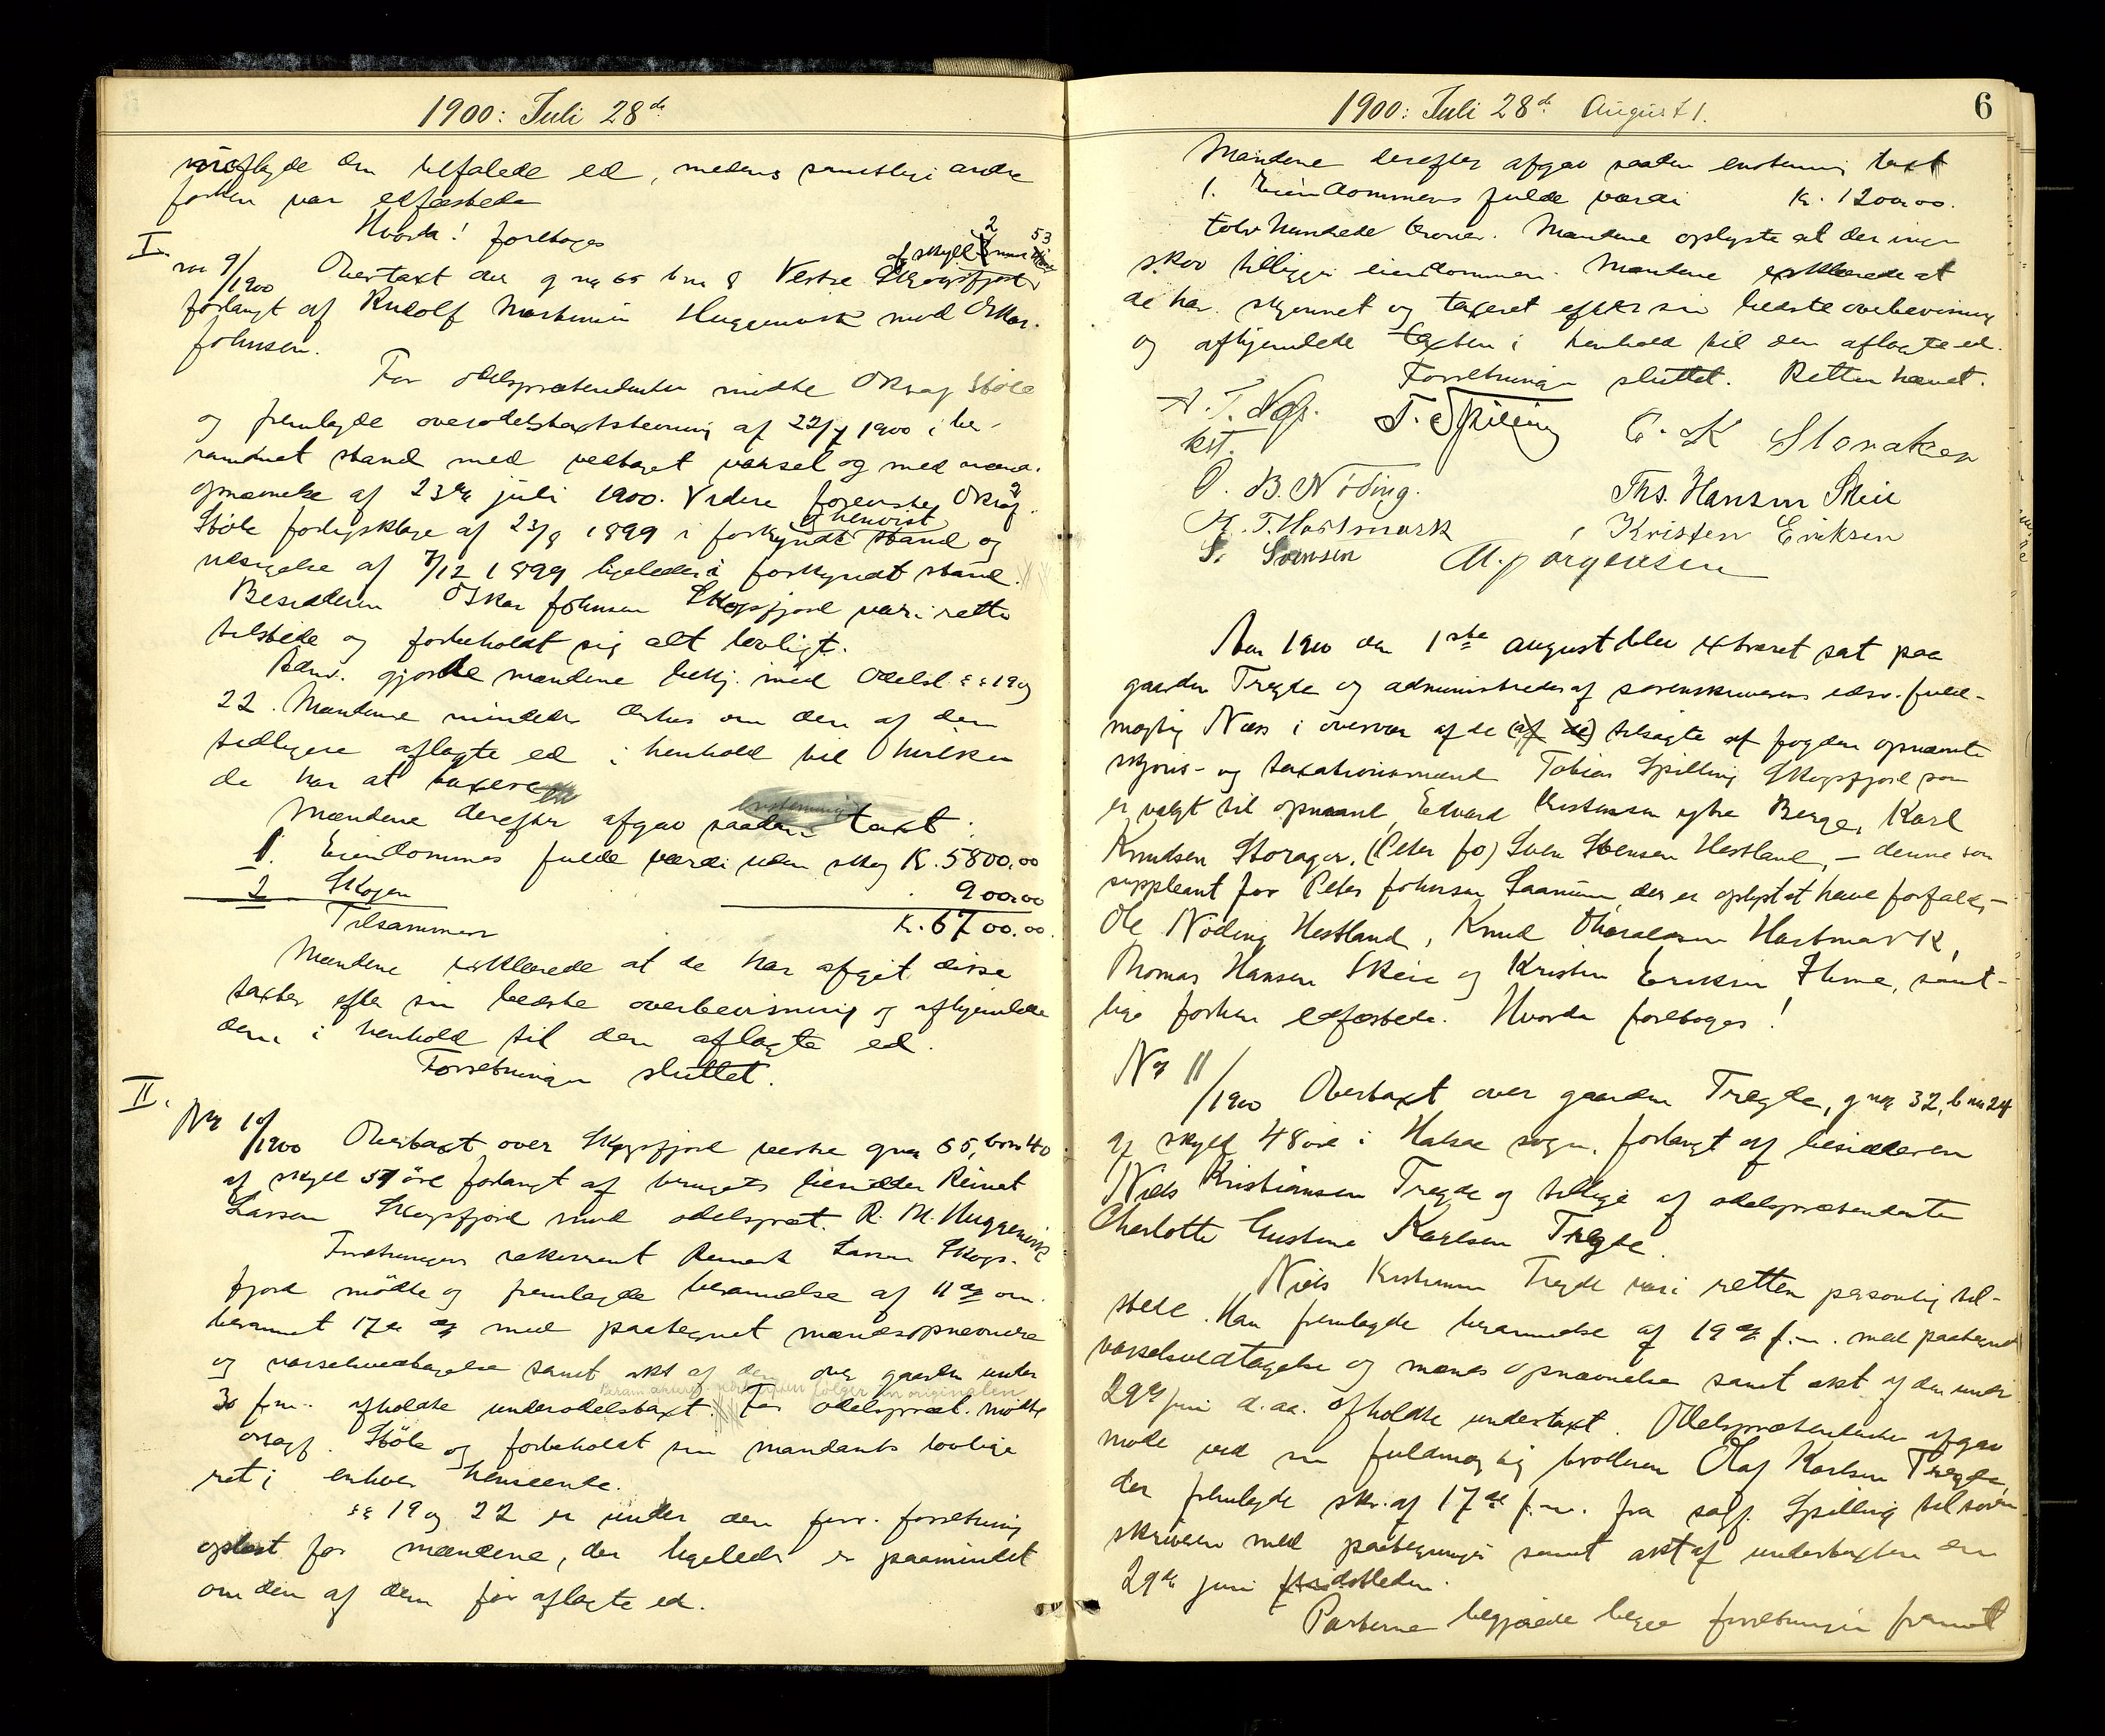 1900: Juli 28de
aflagde den befalede ed, medens samtlige andre
forhen var edfæstede
Hvorda! foretoges
I.
No 9/1900 Overtaxt over g no 65 b no 8 Vestre Skogsfjord af skyld 2 mark 53
forlangt af Rudolf Martinius Huggenvik mod Oskar
Johnsen.
For odelsprætendenten mødte O Ksagf Støle
og fremlagde overodelstaxtstevning af 22/7 1900 i be-
rammet stand med vedtaget varsel og med mænds-
opnævnelse af 23de juli 1900. Videre foreviste O Ksagf
Støle forligsklage af 23/9 1899 i forkyndt og henvist stand og
utsigelse af 7/12 1899 ligeledes i forkyndt stand.
Besidderen Oskar Johnsen Skogsfjord var i rette
tilstede og forbeholdt sig alt lovligt.
Adm. gjorde mændene bekj. med Odelsl. §§ 19 og
22. Mændene mindedes derhos om den af dem
tidligere aflagte ed i henhold til hvilken
de har at taxere
Mændene derefter afgav saadan enstemmig taxt:
1. Eiendommens fulde værdi uden skog Kr. 5800,00
2 Skogen " 900,00
Tilsammen Kr. 6700,00.
Mændene erklærede at de har afgit disse
taxter efter sin bedste overbevisning og afhjemlede
dem i henhold til den aflagte ed.
Forretningen sluttet.
II.
No 10/1900 Overtaxt over Skogsfjord vestre gno 65, bno 40
af skyld 57 öre forlangt af brugets besidder Reinert
Larsen Skogsfjord mod odelspræt. R. M. Huggenvik
Forretningens rekvirent Reinert Larsen Skogs-
fjord mødte og fremlagde berammelse af 11de
berammet 17de med paategnet mændsopnævnelse
og varselsvedtagelse samt akt af den over gaarden under
30 f.m. afholdte underodelstaxt. For odelspræt. mødte
Støle og forbeholdt sin mandants lovlige
ret i enhver henseende.
§§ 19 og 22 er under den forr. forretning
oplæst for mændene, der ligeledes er paamindet
om den af dem før aflagte ed.
1900: Juli 28de August 1.
6
Mændene derefter afgav saadan enstemmig taxt
1. Eiendommens fulde værdi Kr. 1200,00.
tolv hundrede kroner. Mændene oplyste at der ingen
skov tilligger eiendommen. Mændene erklærede at
de har skjønnet og taxeret efter sin bedste overbevisning
og afhjemlede taxten i henhold til den aflagte ed.
Forretningen sluttet. Retten hævet.
A. T. Næss. T. Spilling C. K Storaker
kst.
O. B. Nöding. Ths. Hansen Skeie
K. T. Hartmark Kristen Eriksen
S. Svensen M. Jörgensen
Aar 1900 den 1ste august blev extraret sat paa
gaarden Tregde og administreredes af sorenskriverens edsv. fuld-
mægtig Næss i overvær af de (af de) tilsagte af fogden opnævnte
skjøns- og taxationsmænd Tobias Spilling Skogsfjord som
er valgt til opmand, Edvard Kristensen ytre Berge, Karl
Knudsen Storager, (Peter Jo) Sven Svensen Hestland, — denne som
suppleant for Peter Johnsen Saanum, der er oplyst at have forfald, —
Ole Nöding Hestland, Knud Tharaldsen Hartmark,
Thomas Hansen Skeie og Kristen Eriksen Ihme, samt-
lige forhen edfæstede. Hvorda foretoges!
No 11/1900 Overtaxt over gaarden Tregde, gno 32, bno 24
af skyld 48 øre i Halsaa sogn, forlangt af besidderen
Niels Kristiansen Tregde og tillige af odelsprætendenten
Charlotte Gustine Karlsen Tregde.
Niels Kristiansen Tregde var i retten personlig til-
stede. Han fremlagde berammelse af 19de f.m. med paategnet
varselsvedtagelse og mænds opnævnelse samt akt af den under
29de juni d.aa. afholdte undertaxt. Odelsprætendenten afgav
møde ved sin fuldmægtig broderen Olaf Karlsen Tregde,
der fremlagde skr. af 17de f.m. fra sagf. Spilling til soren-
skriveren med paategninger samt akt af undertaxten den
29de juni sidstleden.
Parterne begjærede begge forretningen fremmet